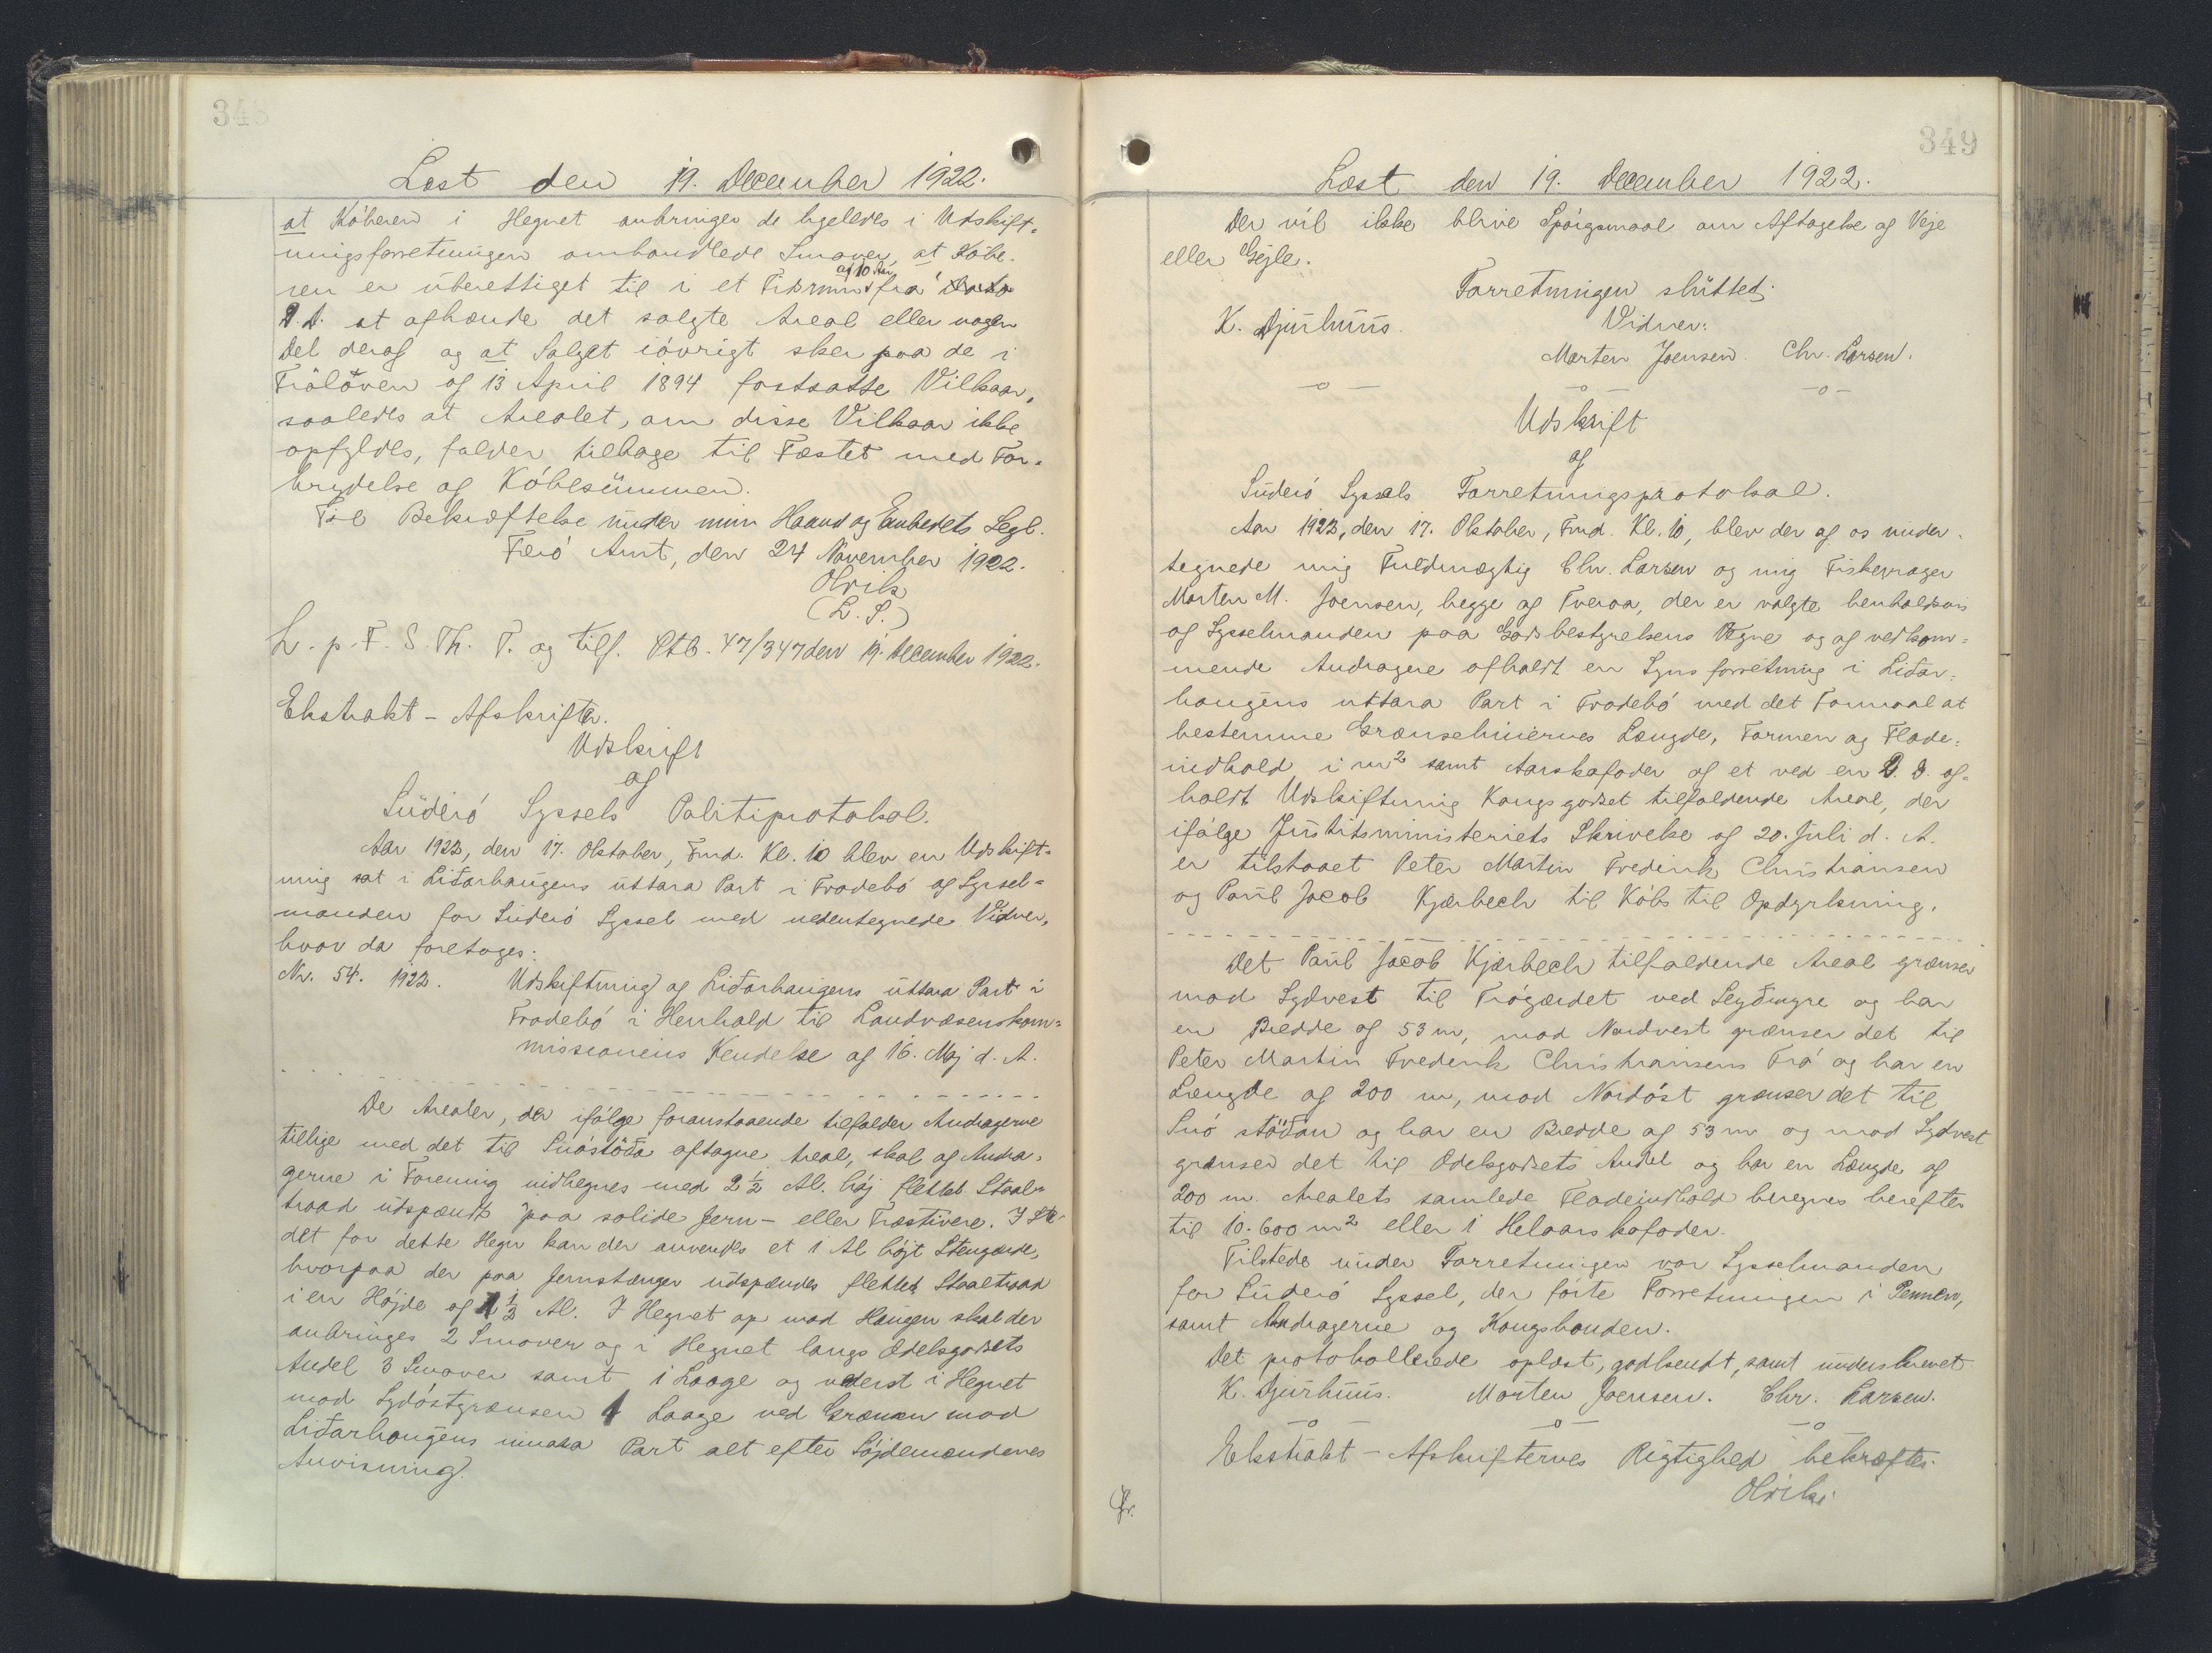 348
Læst den 19. December 1922.
at Køberen i Hegnet anbringer de ligeledes i Udskift-
ningsforretningen omhandlede Smover, at Købe-
ren er uberettiget til i et Tidsrum af 10 Aar fra
D.D. at afhænde det solgte Areal eller nogen
Del deraf og at Salget iøvrigt sker paa de i
Trøloven af 13 April 1894 fastsatte Vilkaar,
saaledes at Arealet, om disse Vilkaar ikke
opfyldes, falder tilbage til Fæstet med For-
brydelse af Købesummen.
Til Bekræftelse under min Haand og Embedets Segl.
Færø Amt, den 24 November 1922.
Olrik
(L.S.)
L. p. F. S. Th. T. og tilf. Ptb. 47/347 den 19. December 1922.
Ekstrakt - Afskrifter.
Udskrift
af
Süderø Syssels Politiprotokol.
Aar 1922, den 17. Oktober, Fmd. Kl. 10 blev en Udskift-
ning sat i Lidarhaugens uttara Part i Frodebø af Syssel-
manden for Suderø Syssel med nedentegnede Vidner,
hvor da foretoges:
Nr. 54. 1922. Udskiftning af Lidarhaugens uttara Part i
Frodebø i Henhold til Landvæsenskom-
missionens Kendelse af 16. Maj d. A.
De Arealer, der ifølge foranstaaende tilfalder Andragerne
tillige med det til Snøstöda aftagne Areal, skal af Andra-
gerne i Forening indhegnes med 2 ½ Al. høj flettet Staal-
traad udspændt paa solide Jern- eller Træstivere. I Ste-
det for dette Hegn kan der anvendes et 1 Al. højt Stengærde,
hvorpaa der paa Jernstænger udspændes flettet Staaltraad
i en Højde af 1 ½ Al. I Hegnet op mod Haugen skal der
anbringes 2 Smover og i Hegnet langs Odelsgodsets
Andel 3 Smover samt 1 Laage og nederst i Hegnet
mod Sydøstgrænsen 1 Laage ved Grænsen mod
Lidarhaugens innara Part alt efter Søjdemændenes
Anvisning.
349
Læst den 19. December 1922.
Der vil ikke blive Spørgsmaal om Aftagelse af Veje
eller Gejle.
Forretningen sluttet.
K. Djurhuus. Vidner:
Morten Joensen. Chr. Larsen.
-o- -o- -o-
Udskrift
af
Süderø Syssels Forretningsprotokol.
Aar 1922, den 17. Oktober, Fmd. Kl. 10, blev der af os under-
tegnede mig Fuldmægtig Chr. Larsen og mig Fiskevrager
Morten M. Joensen, begge af Tveraa, der er valgte henholdsvis
af Sysselmanden paa Godsbestyrelsens Vegne og af vedkom-
mende Andragere afholdt en Synsforretning i Lidar-
haugens uttara Part i Frodebø med det Formaal at
bestemme Grænseliniernes Længde, Formen og Flade-
indhold i m² samt Aarskofoder af et ved en D.D. af-
holdt Udskiftning Kongsgodset tilfaldende Areal, der
ifølge Justitsministeriets Skrivelse af 20. Juli d. A.
er tilstaaet Peter Martin Frederik Christiansen
og Paul Jacob Kjærbech til Købs til Opdyrkning.
Det Paul Jacob Kjærbech tilfaldende Areal grænser
mod Sydvest til Trøgærdet ved Leydmyre og har
en Bredde af 53 m, mod Nordvest grænser det til
Peter Martin Frederik Christiansens Trø og har en
Længde af 200 m, mod Nordøst grænser det til
Snóstöðan og har en Bredde af 53 m og mod Sydvest
grænser det til Odelsgodsets Andel og har en Længde af
200 m. Arealets samlede Fladeindhold beregnes herefter
til 10.600 m² eller 1 Helaarskofoder.
Tilstede under Forretningen var Sysselmanden
for Süderø Syssel, der førte Forretningen i Pennen,
samt Andragerne og Kongsbonden.
Det protokollerede oplæst, godkendt, samt underskrevet
K. Djurhuus. Morten Joensen. Chr. Larsen.
-o- -o- -o
Ekstrakt - Afskrifternes Rigtighed bekræftes.
Olrik.